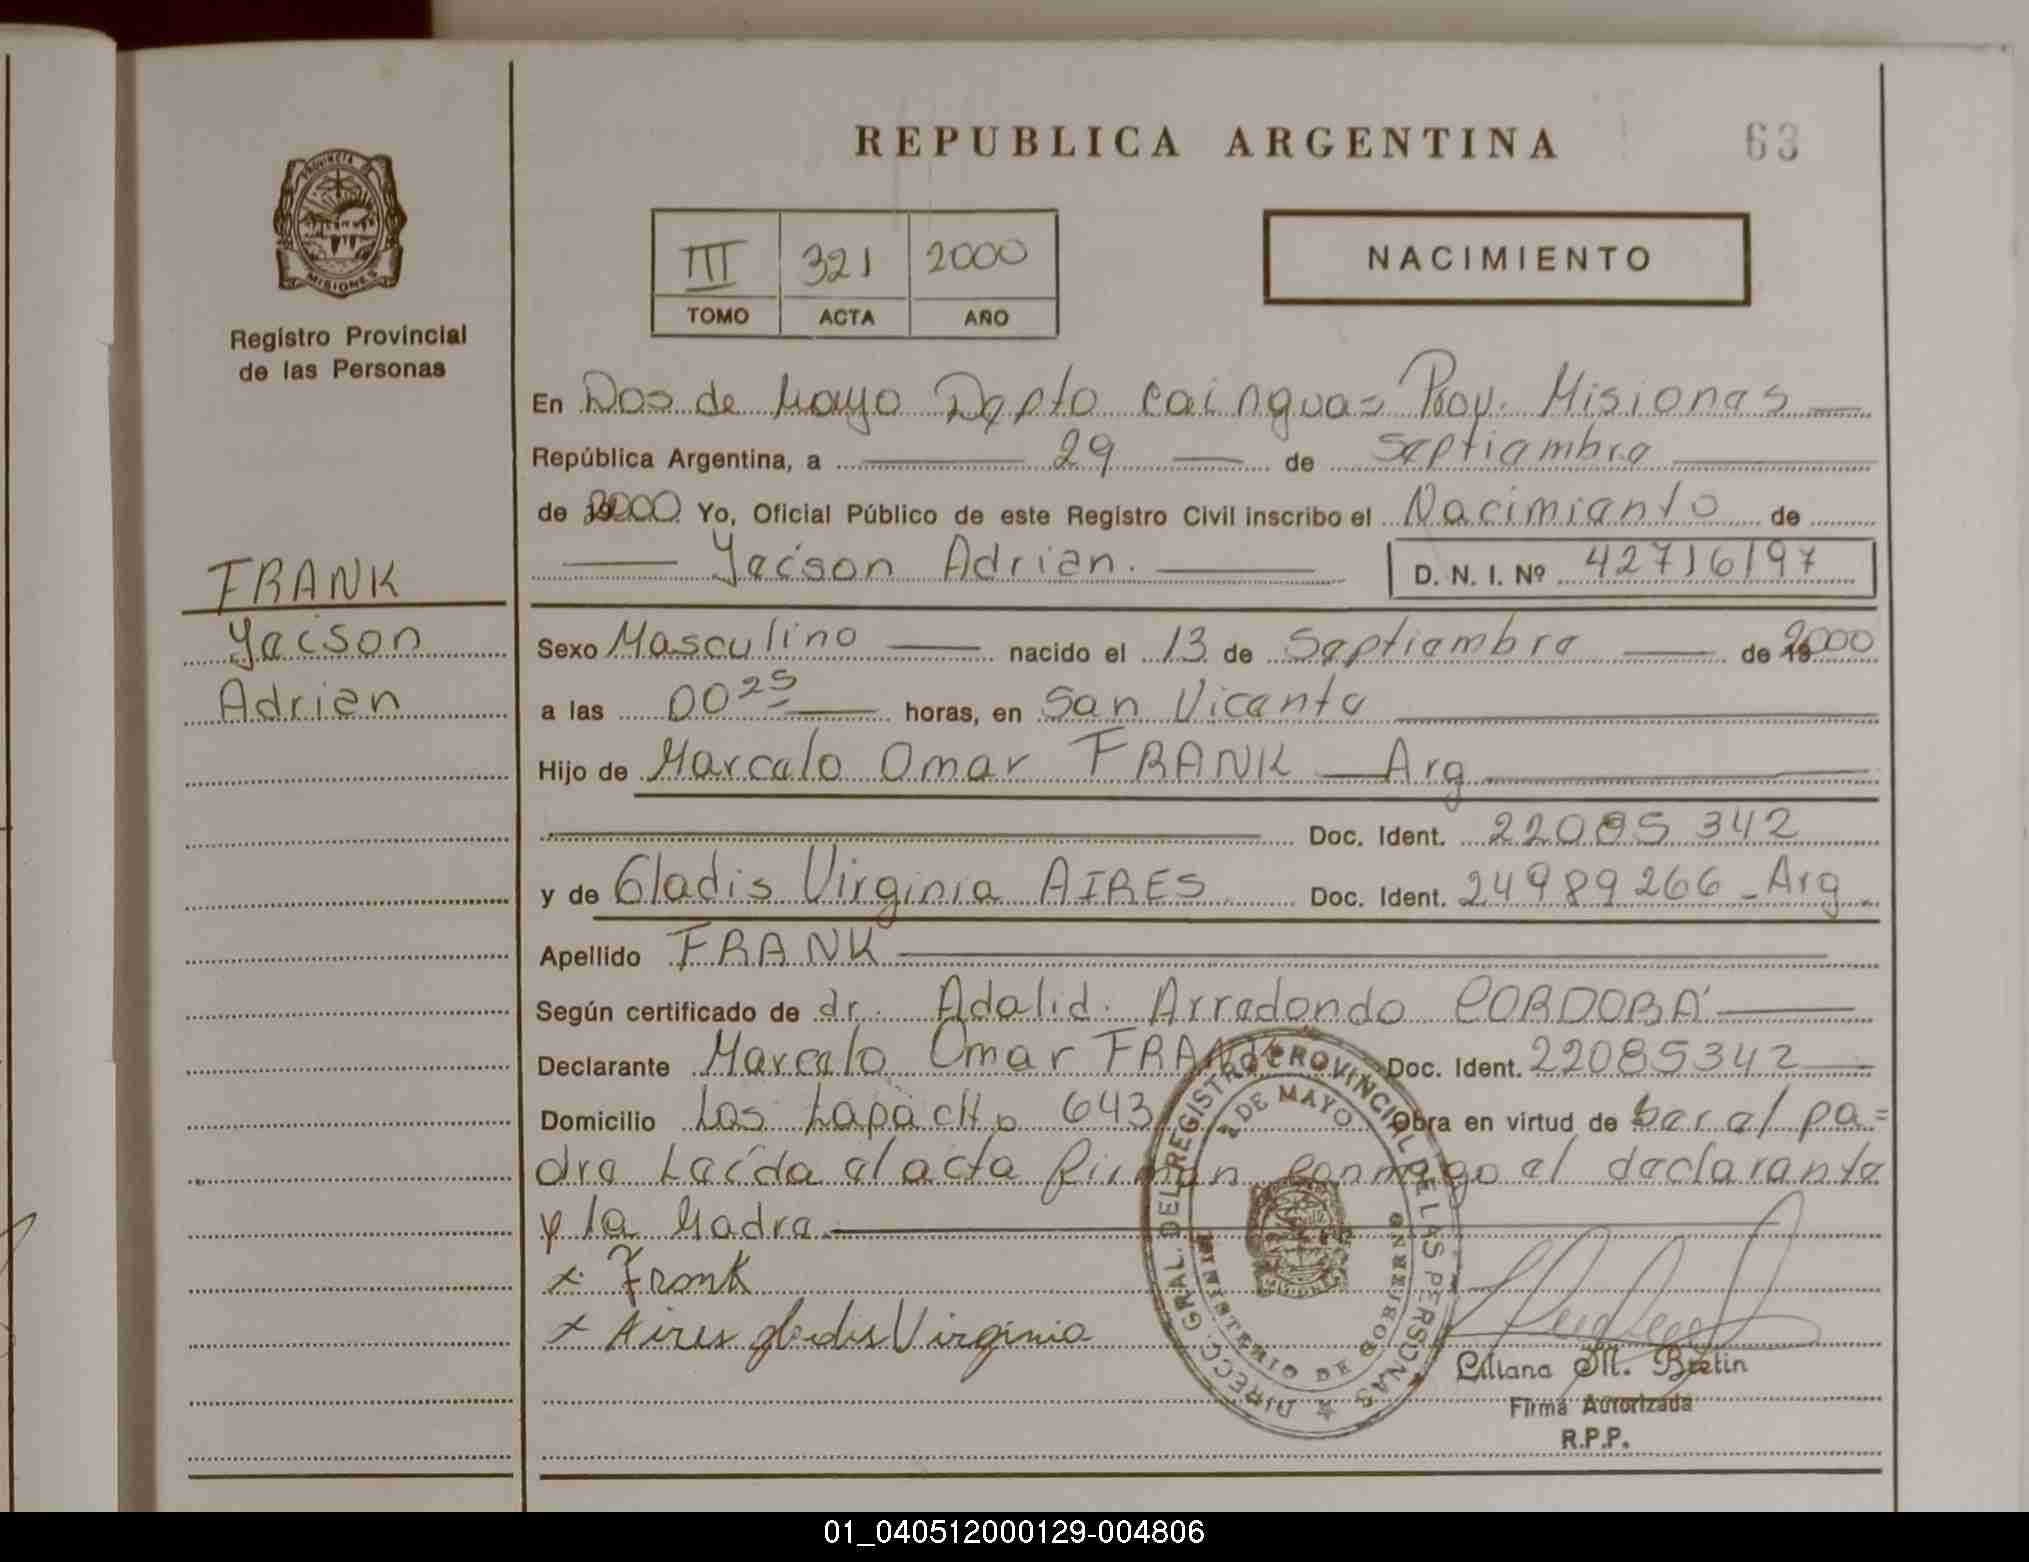 REPUBLICA ARGENTINA
63
PROVINCIA
MISIONES
Registro Provincial
de las Personas
III 321 2000
TOMO ACTA AÑO
NACIMIENTO
En Dos de Mayo Depto Cainguas Prov. Misiones
República Argentina, a 29 de Septiembre
de 2000 Yo, Oficial Público de este Registro Civil inscribo el Nacimiento de
Yeison Adrian. D. N. I. Nº 42716197
FRANK
Yeison
Adrian
Sexo Masculino nacido el 13 de Septiembre de 2000
a las 00 25 horas, en San Vicente
Hijo de Marcelo Omar FRANK Arg
Doc. Ident. 22085342
y de Gladis Virginia AIRES Doc. Ident. 24989266 - Arg.
Apellido FRANK
Según certificado de dr. Adalid. Arredondo CORDOBA
Declarante Marcelo Omar FRANK Doc. Ident. 22085342
Domicilio Los Lapacho 643 Obra en virtud de ser el pa=
dre Leída el acta firman conmigo el declarante
y la Madre.
x Frank
x Aires gladis Virginia
DIRECC. GRAL. DEL REGISTRO PROVINCIAL DE LAS PERSONAS
2 DE MAYO
MINISTERIO DE GOBIERNO
Liliana M. Bretin
Firma Autorizada
R.P.P.
01_040512000129-004806